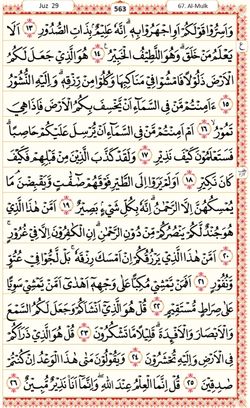 Juz 29 563 67. Al-Mulk
وَاَسِرُّوْا قَوْلَكُمْ اَوِ اجْهَرُوْا بِهٖ ؕ اِنَّهٗ عَلِيْمٌۢ بِذَاتِ الصُّدُوْرِ ۱۳ اَلَا
يَعْلَمُ مَنْ خَلَقَ ؕ وَهُوَ اللَّطِيْفُ الْخَبِيْرُ ۱۴ هُوَ الَّذِيْ جَعَلَ لَكُمُ
الْاَرْضَ ذَلُوْلًا فَامْشُوْا فِيْ مَنَاكِبِهَا وَكُلُوْا مِنْ رِّزْقِهٖ ؕ وَاِلَيْهِ النُّشُوْرُ
۱۵ ءَاَمِنْتُمْ مَّنْ فِي السَّمَآءِ اَنْ يَّخْسِفَ بِكُمُ الْاَرْضَ فَاِذَا هِيَ
تَمُوْرُ ۱۶ اَمْ اَمِنْتُمْ مَّنْ فِي السَّمَآءِ اَنْ يُّرْسِلَ عَلَيْكُمْ حَاصِبًا ؕ
فَسَتَعْلَمُوْنَ كَيْفَ نَذِيْرِ ۱۷ وَلَقَدْ كَذَّبَ الَّذِيْنَ مِنْ قَبْلِهِمْ فَكَيْفَ
كَانَ نَكِيْرِ ۱۸ اَوَلَمْ يَرَوْا اِلَى الطَّيْرِ فَوْقَهُمْ صٰٓفّٰتٍ وَّيَقْبِضْنَ ؕ مَا
يُمْسِكُهُنَّ اِلَّا الرَّحْمٰنُ ؕ اِنَّهٗ بِكُلِّ شَيْءٍۢ بَصِيْرٌ ۱۹ اَمَّنْ هٰذَا الَّذِيْ
هُوَ جُنْدٌ لَّكُمْ يَنْصُرُكُمْ مِّنْ دُوْنِ الرَّحْمٰنِ ؕ اِنِ الْكٰفِرُوْنَ اِلَّا فِيْ غُرُوْرٍ
۲۰ اَمَّنْ هٰذَا الَّذِيْ يَرْزُقُكُمْ اِنْ اَمْسَكَ رِزْقَهٗ ۚ بَلْ لَّجُّوْا فِيْ عُتُوٍّ
وَّنُفُوْرٍ ۲۱ اَفَمَنْ يَّمْشِيْ مُكِبًّا عَلٰى وَجْهِهٖٓ اَهْدٰٓى اَمَّنْ يَّمْشِيْ سَوِيًّا
عَلٰى صِرَاطٍ مُّسْتَقِيْمٍ ۲۲ قُلْ هُوَ الَّذِيْٓ اَنْشَاَكُمْ وَجَعَلَ لَكُمُ السَّمْعَ
وَالْاَبْصَارَ وَالْاَفْـِٕدَةَ ؕ قَلِيْلًا مَّا تَشْكُرُوْنَ ۲۳ قُلْ هُوَ الَّذِيْ ذَرَاَكُمْ
فِي الْاَرْضِ وَاِلَيْهِ تُحْشَرُوْنَ ۲۴ وَيَقُوْلُوْنَ مَتٰى هٰذَا الْوَعْدُ اِنْ كُنْتُمْ
صٰدِقِيْنَ ۲۵ قُلْ اِنَّمَا الْعِلْمُ عِنْدَ اللّٰهِ ۪ وَاِنَّمَآ اَنَا نَذِيْرٌ مُّبِيْنٌ ۲۶